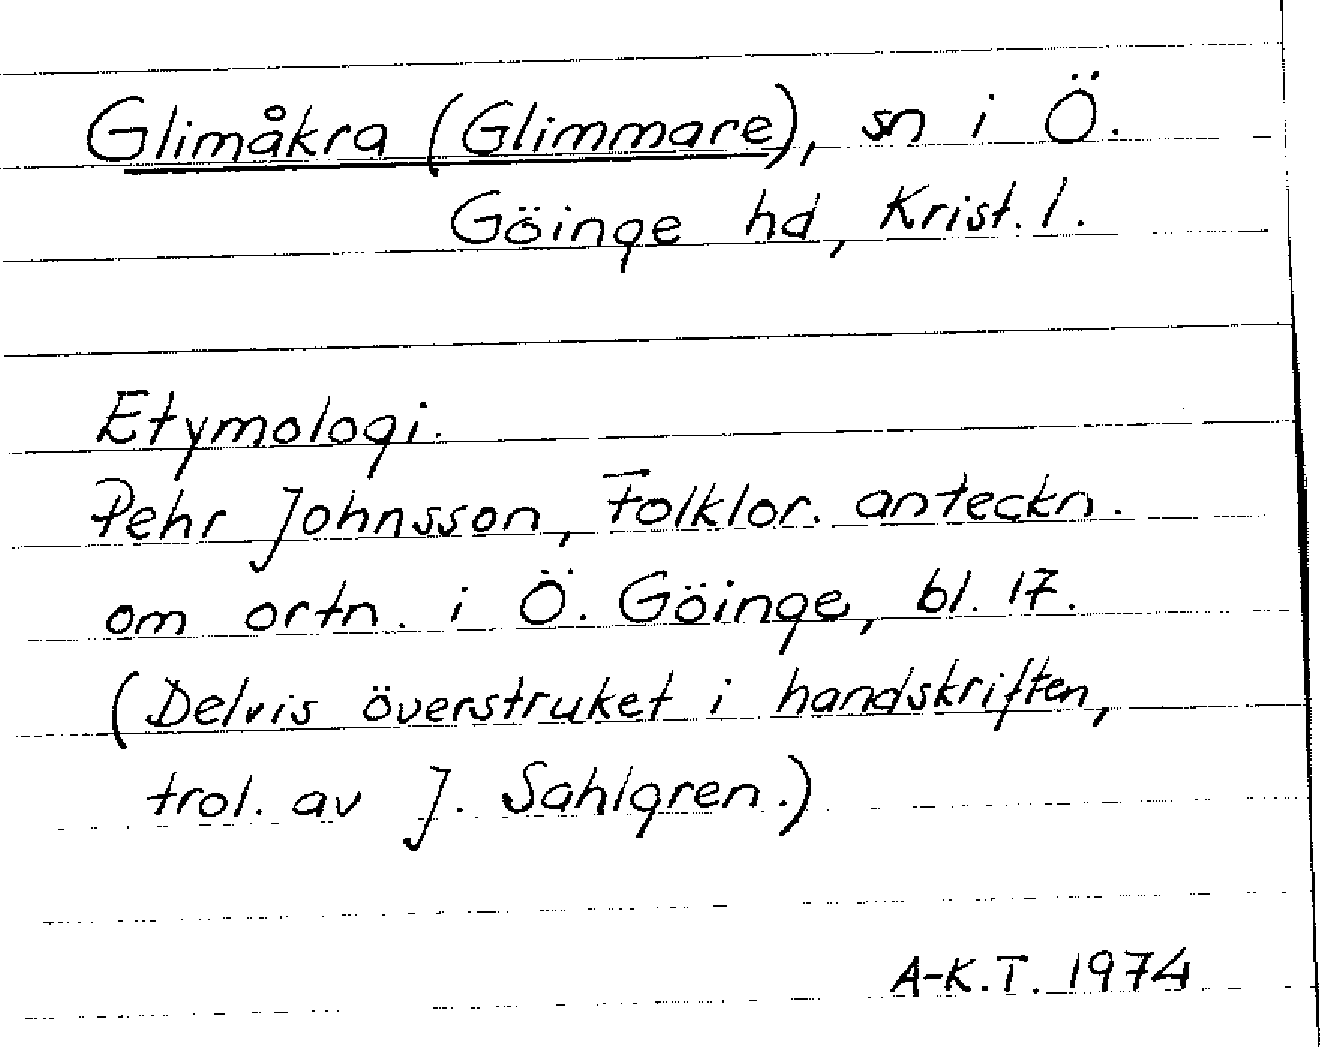 Glimåkra (Glimmare), sn i Ö.
Göinge hd, Krist. l.
Etymologi.
Pehr Johnsson, Folklor. anteckn.
om ortn. i Ö. Göinge, bl. 17.
(Delvis överstruket i handskriften,
trol. av J. Sahlgren.)
A-K.T. 1974